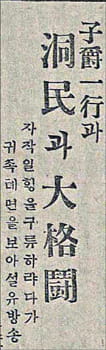 子爵一行과
洞民과大格鬪
자작일힝을구류하랴다가
귀족톄면을보아셜유방송